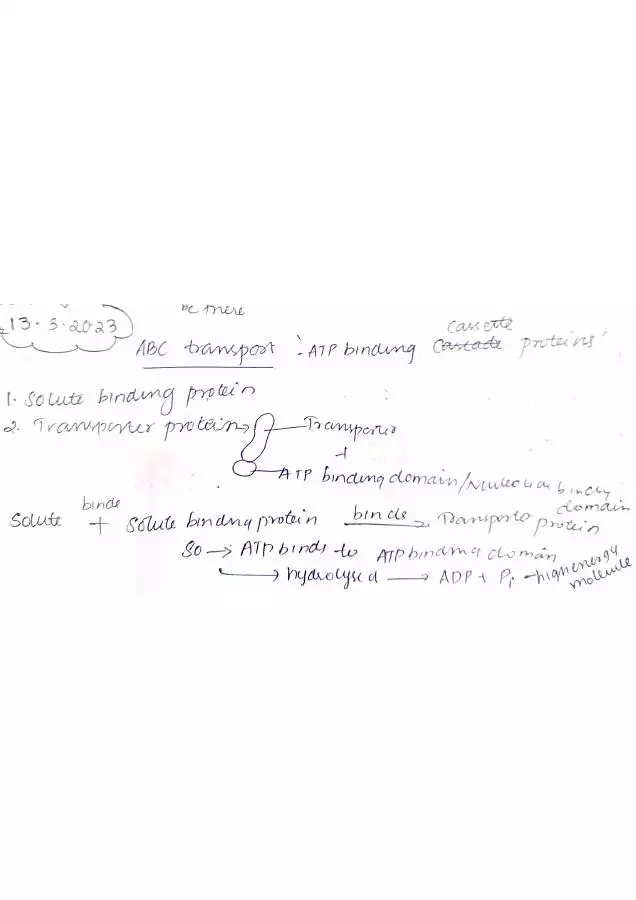 be there
13.3.2023
Cassette
ABC transport :- ATP binding Cascade proteins'
1. Solute binding protein
2. Transporter protein Transporter
+
ATP binding domain/Nucleotide binding domain
binds
Solute + Solute binding protein binds Transporter protein
So → ATP binds to ATP binding domain
hydrolysed → ADP + Pi - high energy molecule